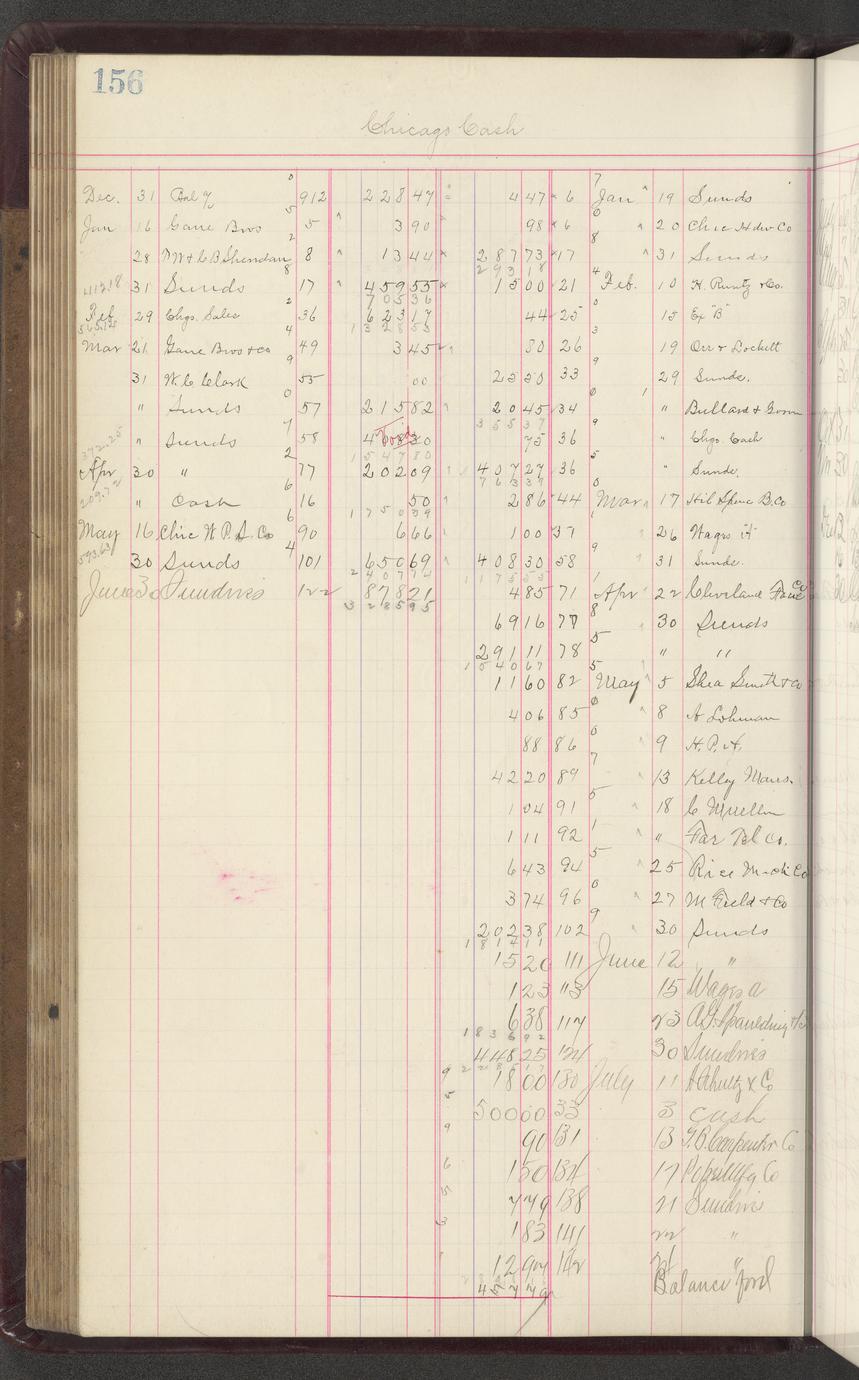 156
Chicago Cash
Dec. 31 Bal 912 228 47 4 47 6 Jan 19 Sunds
Jan 16 Gane Bros 5 3 90 98 6 20 Chic Hdw Co
28 & C B Sheridan 8 13 44 287 73 17 31 Sunds
293 18
412 18 31 Sunds 17 459 55 15 00 21 Feb. 10 H. Runtz & Co.
705 36
Feb 29 Chgs. Sales 36 623 17 44 25 15 Ex "B"
1328 53
Mar 21 Gane Bros & Co 49 3 45 80 26 19 Orr & Lockett
31 W. C. Clark 55 00 25 50 33 29 Sunds.
" Sunds 57 215 82 20 45 34 " Bullard & Gorm
355 37
372.25 " Sunds 58 Void 75 36 " Chgs. Cash
1547 80
Apr 30 " 77 202 09 407 27 36 " Sunds.
763 39
" Cash 16 50 2 86 44 Mar 17 Hib Spenc B. Co
1750 39
May 16 Chic W. P. S. Co 90 6 66 1 00 37 26 Wages "A"
593.63 30 Sunds 101 650 69 408 30 58 31 Sunds.
2407 74 1175 55
June 30 Sundries 122 878 21 4 85 71 Apr 22 Cleveland Co
3285 95
69 16 77 30 Sunds
291 11 78 " "
1540 67
11 60 82 May 5 Shea Smith & Co
4 06 85 8 A Lohman
88 86 9 H. P. H.
42 20 89 13 Kelly Maus.
1 04 91 18 C Muellin
1 11 92 " Far Tel Co.
6 43 94 25 Rice Mach Co
3 74 96 27 M Field & Co
202 38 102 30 Sunds
1814 11
15 20 111 June 12 "
1 23 113 15 Wages a
6 38 117 23 A. G. Spaulding &
1836 92
448 25 124 30 Sundries
2285 17
18 00 130 July 11 A Shultz & Co
500 00 33 3 Cash
90 131 13 F. B. Carpenter Co
1 50 134 17 Pope Mfg Co
7 79 138 21 Sundries
1 83 141 22 "
12 97 142 "
457 79 Balance Ford